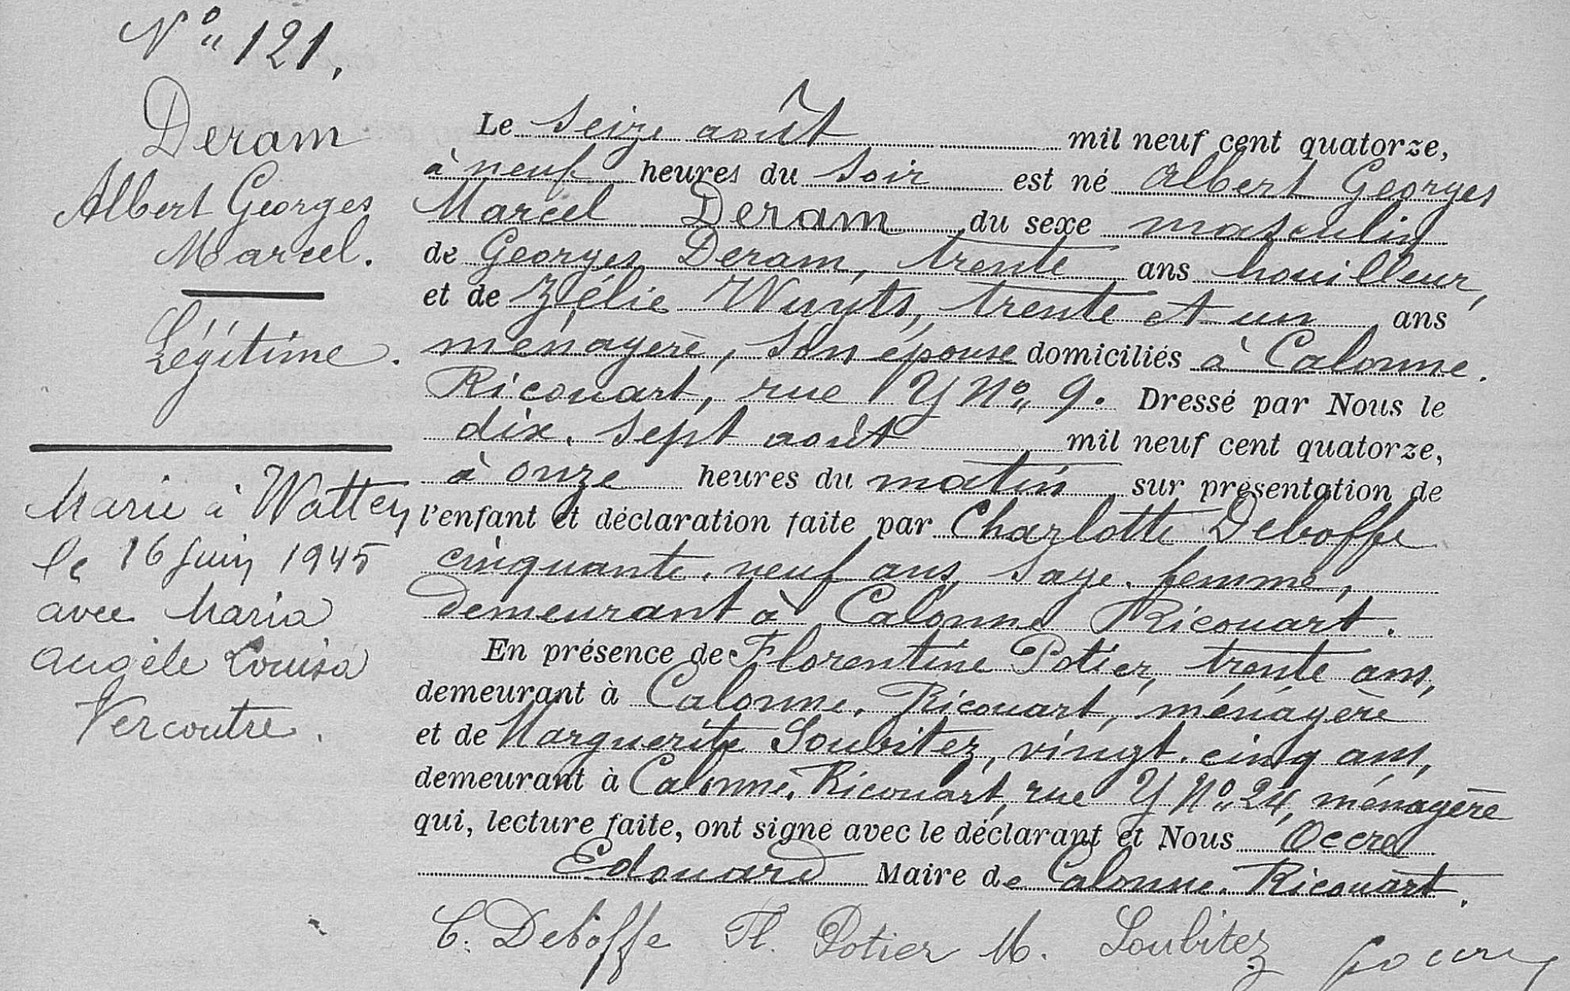 No 121.
Deram
Albert Georges
Marcel.
Légitime.
Marié à Watten
le 16 Juin 1945
avec Maria
Angèle Louisa
Vercoutre.
Le seize août mil neuf cent quatorze,
à neuf heures du soir est né Albert Georges
Marcel Deram du sexe masculin
de Georges Deram, trente ans houilleur,
et de Zélie Wuyts, trente et un ans
ménagère, son épouse domiciliés à Calonne-
Ricouart, rue Y No 9. Dressé par Nous le
dix-sept août mil neuf cent quatorze,
à onze heures du matin sur présentation de
l'enfant et déclaration faite par Charlotte Deboffe
cinquante-neuf ans, sage-femme,
demeurant à Calonne Ricouart.
En présence de Florentine Potier, trente ans,
demeurant à Calonne-Ricouart, ménagère
et de Marguerite Soubitez, vingt-cinq ans,
demeurant à Calonne-Ricouart, rue Y No 24, ménagère
qui, lecture faite, ont signé avec le déclarant et Nous Occre
Edouard Maire de Calonne-Ricouart.
C. Deboffe Fl. Potier M. Soubitez